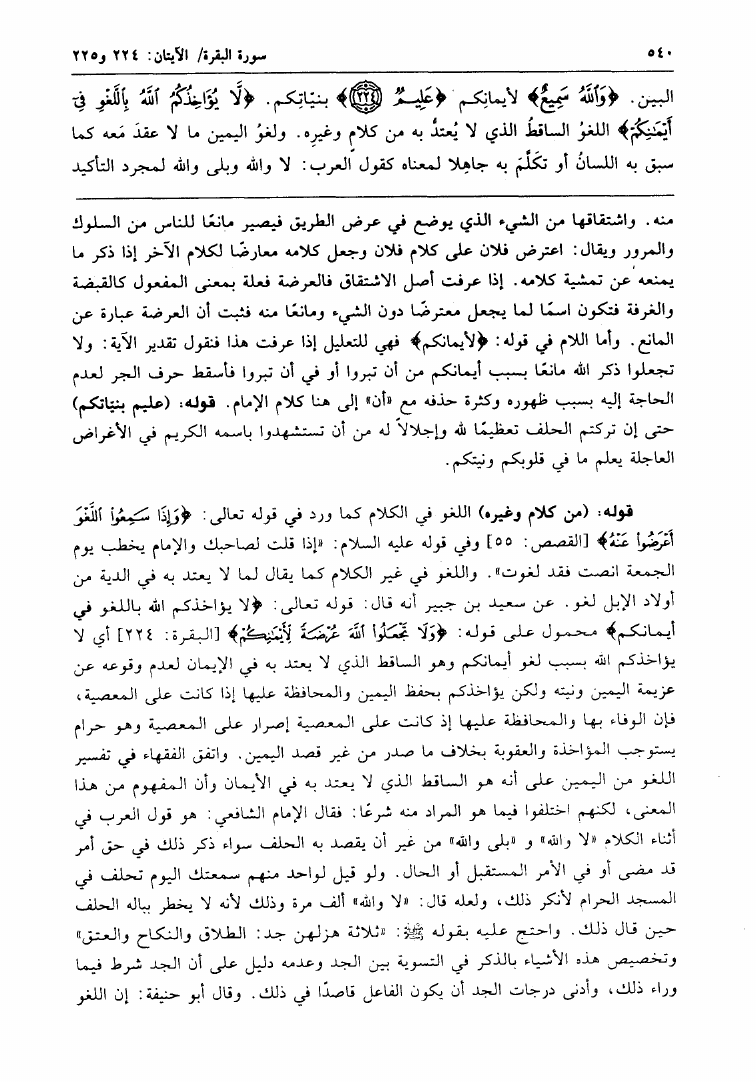 ٥٤٠ سورة البقرة/ الآيتان: ٢٢٤ و٢٢٥
البين. ﴿وَٱللَّهُ سَمِيعٌ﴾ لأيمانكم ﴿عَلِيمٌ ﴿٢٢٤﴾﴾ بنيّاتكم. ﴿لَّا يُؤَاخِذُكُمُ ٱللَّهُ بِٱللَّغْوِ فِىٓ
أَيْمَٰنِكُمْ﴾ اللغوُ الساقطُ الذي لا يُعتدُّ به من كلام وغيرِه. ولغوُ اليمين ما لا عقدَ مَعه كما
سبق به اللسانُ أو تكَلَّمَ به جاهِلا لمعناه كقول العرب: لا والله وبلى والله لمجرد التأكيد
منه. واشتقاقها من الشيء الذي يوضع في عرض الطريق فيصير مانعًا للناس من السلوك
والمرور ويقال: اعترض فلان على كلام فلان وجعل كلامه معارضًا لكلام الآخر إذا ذكر ما
يمنعه عن تمشية كلامه. إذا عرفت أصل الاشتقاق فالعرضة فعلة بمعنى المفعول كالقبضة
والغرفة فتكون اسمًا لما يجعل معترضًا دون الشيء ومانعًا منه فثبت أن العرضة عبارة عن
المانع. وأما اللام في قوله: ﴿لأيمانكم﴾ فهي للتعليل إذا عرفت هذا فنقول تقدير الآية: ولا
تجعلوا ذكر الله مانعًا بسبب أيمانكم من أن تبروا أو في أن تبروا فأسقط حرف الجر لعدم
الحاجة إليه بسبب ظهوره وكثرة حذفه مع «أن» إلى هنا كلام الإمام. قوله: (عليم بنيّاتكم)
حتى إن تركتم الحلف تعظيمًا لله وإجلالاً له من أن تستشهدوا باسمه الكريم في الأغراض
العاجلة يعلم ما في قلوبكم ونيتكم.
قوله: (من كلام وغيره) اللغو في الكلام كما ورد في قوله تعالى: ﴿وَإِذَا سَمِعُوا۟ ٱللَّغْوَ
أَعْرَضُوا۟ عَنْهُ﴾ [القصص: ٥٥] وفي قوله عليه السلام: «إذا قلت لصاحبك والإمام يخطب يوم
الجمعة انصت فقد لغوت». واللغو في غير الكلام كما يقال لما لا يعتد به في الدية من
أولاد الإبل لغو. عن سعيد بن جبير أنه قال: قوله تعالى: ﴿لا يؤاخذكم الله باللغو في
أيمانكم﴾ محمول على قوله: ﴿وَلَا تَجْعَلُوا۟ ٱللَّهَ عُرْضَةً لِّأَيْمَٰنِكُمْ﴾ [البقرة: ٢٢٤] أي لا
يؤاخذكم الله بسبب لغو أيمانكم وهو الساقط الذي لا يعتد به في الإيمان لعدم وقوعه عن
عزيمة اليمين ونيته ولكن يؤاخذكم بحفظ اليمين والمحافظة عليها إذا كانت على المعصية،
فإن الوفاء بها والمحافظة عليها إذ كانت على المعصية إصرار على المعصية وهو حرام
يستوجب المؤاخذة والعقوبة بخلاف ما صدر من غير قصد اليمين. واتفق الفقهاء في تفسير
اللغو من اليمين على أنه هو الساقط الذي لا يعتد به في الأيمان وأن المفهوم من هذا
المعنى، لكنهم اختلفوا فيما هو المراد منه شرعًا: فقال الإمام الشافعي: هو قول العرب في
أثناء الكلام «لا والله» و «بلى والله» من غير أن يقصد به الحلف سواء ذكر ذلك في حق أمر
قد مضى أو في الأمر المستقبل أو الحال. ولو قيل لواحد منهم سمعتك اليوم تحلف في
المسجد الحرام لأنكر ذلك، ولعله قال: «لا والله» ألف مرة وذلك لأنه لا يخطر بباله الحلف
حين قال ذلك. واحتج عليه بقوله ﷺ: «ثلاثة هزلهن جد: الطلاق والنكاح والعتق»
وتخصيص هذه الأشياء بالذكر في التسوية بين الجد وعدمه دليل على أن الجد شرط فيما
وراء ذلك، وأدنى درجات الجد أن يكون الفاعل قاصدًا في ذلك. وقال أبو حنيفة: إن اللغو